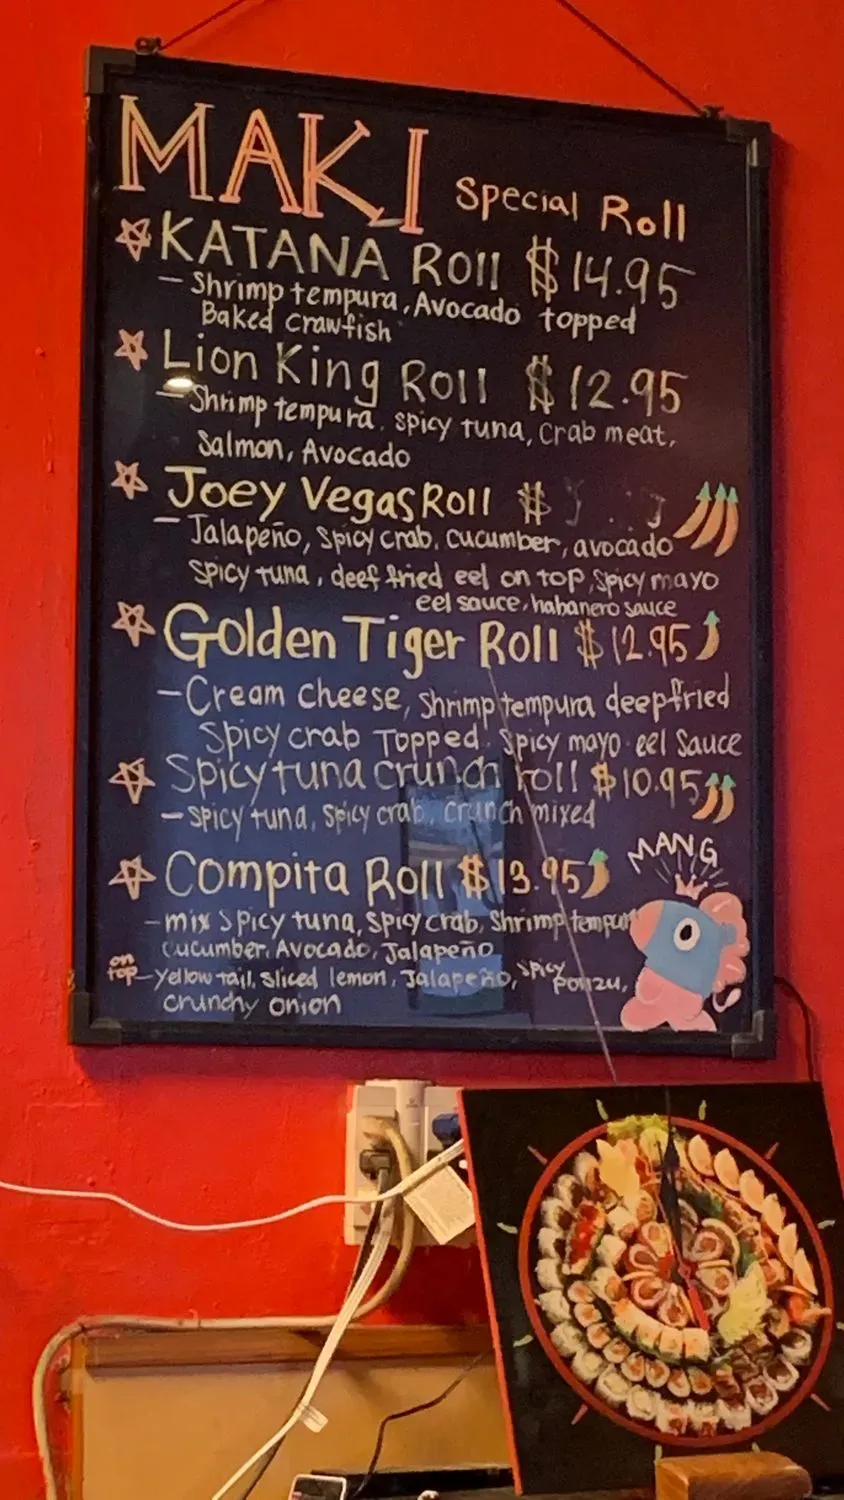 MAKI Special Roll
KATANA Roll $14.95
- Shrimp tempura, Avocado topped
Baked crawfish
Lion King Roll $12.95
- Shrimp tempura, spicy tuna, crab meat,
Salmon, Avocado
Joey Vegas Roll $
- Jalapeño, spicy crab, cucumber, avocado
spicy tuna, deef fried eel on top, spicy mayo
eel sauce, habanero sauce
Golden Tiger Roll $12.95
- Cream cheese, shrimp tempura deepfried
Spicy crab Topped, spicy mayo eel Sauce
Spicy tuna crunch roll $10.95
- spicy tuna, spicy crab, crunch mixed
MANG
Compita Roll $13.95
- mix spicy tuna, spicy crab, Shrimp tempur
cucumber, Avocado, Jalapeño
on top - yellow tail, sliced lemon, Jalapeño, spicy ponzu,
crunchy onion